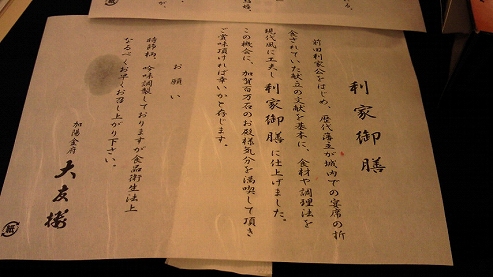 利家御膳
前田利家公をはじめ、歴代藩主が城内での宴席の折
食されていた献立の文献を基本に、食材や調理法を
現代風に工夫し利家御膳に仕上げました。
この機会に、加賀百万石のお殿様気分を満喫して頂き
ご賞味頂ければ幸いかと存じます。
お願い
時節柄、吟味調製しておりますが食品衛生法上
なるべくお早くお召し上がり下さい。
加陽金府
大友楼